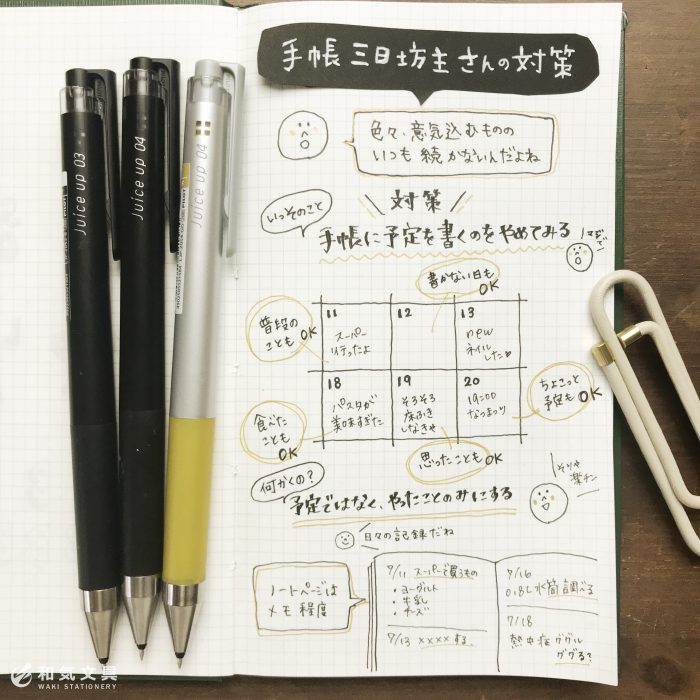 手帳三日坊主さんの対策
色々、意気込むものの
いつも続かないんだよね
いっそのこと
対策
手帳に予定を書くのをやめてみる
マジで!
書かない日も
OK
普段の
ことも OK
11
スーパー
行ったよ
12
13
new
ネイル
した♡
18
パスタが
美味すぎた
19
そろそろ
床ふき
しなきゃ
20
19:00
なつまつり
ちょこっと
予定も OK
食べた
ことも
OK
思ったことも OK
何かくの?
予定ではなく、やったことのみにする
そりゃ
楽チン
日々の記録だね
ノートページは
メモ程度
7/11 スーパーで買うもの
・ヨーグルト
・牛乳
・チーズ
7/13 ××××する
7/16
0.8L水筒調べる
7/18
熱中症ググル
ググる?
Juice up 03
Juice up 04
Juice up 04
和気文具
WAKI STATIONERY